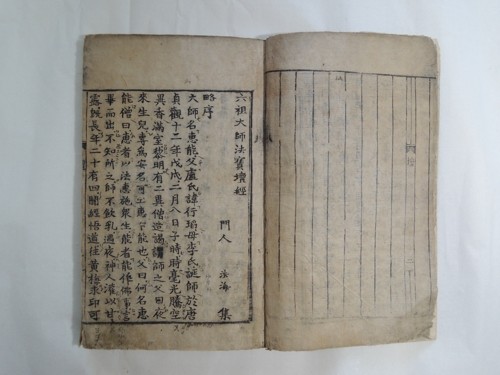 六祖大師法寶壇經
門人 法海 集
略序
大師名惠能父盧氏諱行瑫母李氏誕師於唐
貞觀十二年戊戌二月八日子時時毫光騰空
異香滿室黎明有二異僧造謁謂師之父曰夜
來生兒專爲安名可上惠下能也父曰何名惠
能僧曰惠者以法惠施衆生能者能作佛事言
畢而出不知所之師不飲乳過夜神人灌以甘
露旣長年二十有四聞經悟道往黃梅求印可